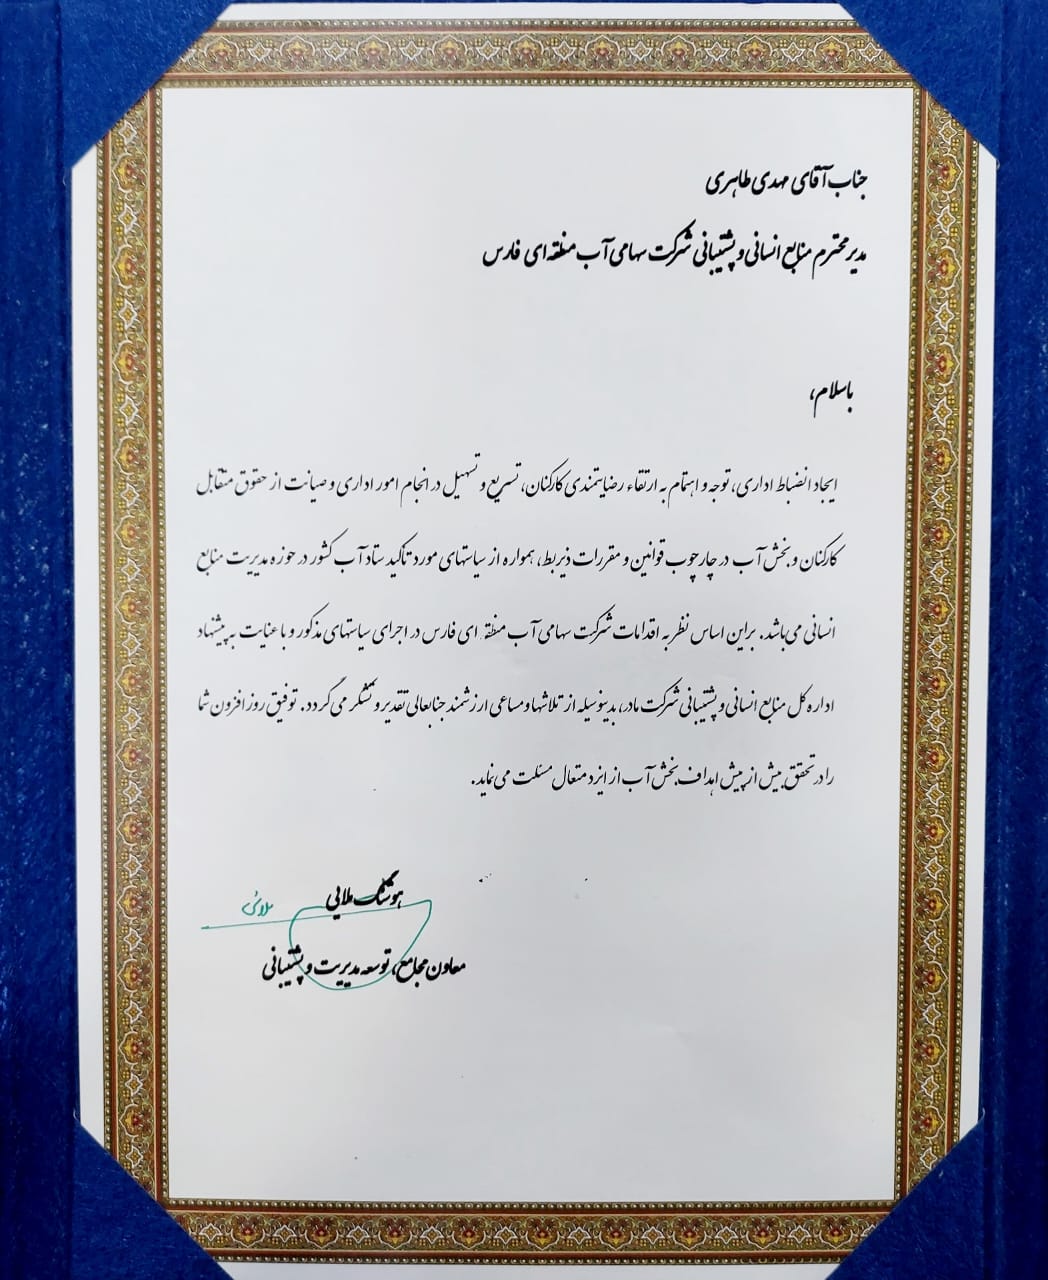 جناب آقای مهدی طاهری
مدیر محترم منابع انسانی و پشتیبانی شرکت سهامی آب منطقه ای فارس
باسلام،
ایجاد انضباط اداری، توجه و اهتمام به ارتقاء رضایتمندی کارکنان، تسریع و تسهیل در انجام امور اداری و صیانت از حقوق متقابل
کارکنان و بخش آب در چارچوب قوانین و مقررات ذیربط، همواره از سیاستهای مورد تأکید ستاد آب کشور در حوزه مدیریت منابع
انسانی می باشد. براین اساس نظر به اقدامات شرکت سهامی آب منطقه ای فارس در اجرای سیاستهای مذکور و با عنایت به پیشنهاد
اداره کل منابع انسانی و پشتیبانی شرکت مادر، بدینوسیله از تلاشها و مساعی ارزشمند جنابعالی تقدیر و تشکر می گردد. توفیق روز افزون شما
را در تحقق بیش از پیش اهداف بخش آب از ایزد متعال مسئلت می نماید.
هوشنگ ملایی
ملائی
معاون مجامع، توسعه مدیریت و پشتیبانی